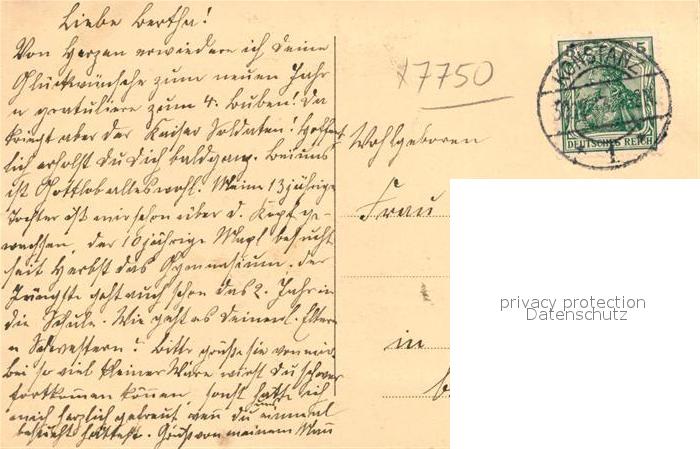 Liebe Bertha!
Von Herzen erwiedere ich Deine
Glückwünsche zum neuen Jahr
u gratuliere zum 4. Buben! Da
kriegt aber der Kaiser Soldaten! Hoffent-
lich erholst Du Dich bald ganz. Bei uns
ist Gottlob alles wohl. Meine 13jährige
Tochter ist mir schon über d. Kopf ge-
wachsen, der 10jährige besucht
seit Herbst das Gymnasium, der
Jüngste geht auch schon das 2. Jahr in
die Schule. Wie geht es Deinen l. Eltern
u Schwestern? Bitte grüße sie von mir.
Bei so viel kleiner Ware wirst Du schwer
fortkommen können, sonst hätte ich
mich herzlich gefreut, wenn Du uns einmal
besucht hättest. Gruß von meinem Mann
17750
KONSTANZ
5
DEUTSCHES REICH
1
Wohlgeboren
Frau
in
privacy protection
Datenschutz